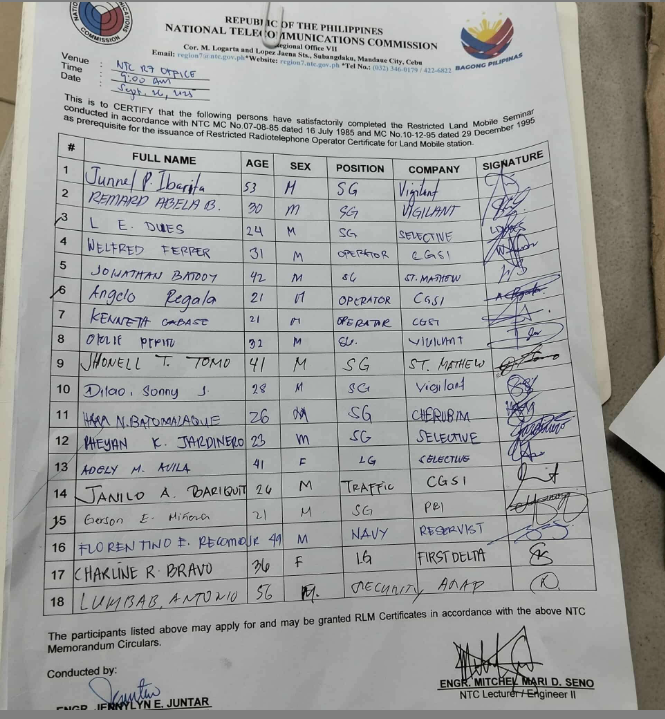 REPUBLIC OF THE PHILIPPINES
NATIONAL TELECOMMUNICATIONS COMMISSION
Regional Office VII
Cor. M. Logarta and Lopez Jaena Sts., Subangdaku, Mandaue City, Cebu
Email: region7@ntc.gov.ph*Website: region7.ntc.gov.ph *Tel No.: (032) 346-0179 / 422-6822
COMMISSION
BAGONG PILIPINAS
Venue : NTC R7 OFFICE
Time : 9:00 AM
Date : Sept. 26,
This is to CERTIFY that the following persons have satisfactorily completed the Restricted Land Mobile Seminar
conducted in accordance with NTC MC No.07-08-85 dated 16 July 1985 and MC No.10-12-95 dated 29 December 1995
as prerequisite for the issuance of Restricted Radiotelephone Operator Certificate for Land Mobile station.
# FULL NAME AGE SEX POSITION COMPANY SIGNATURE
1 Junnel P. Ibarita 53 M SG Vigilant
2 REMARD ABELA B. 30 M SG VIGILANT
3 L E. 24 M SG SELECTIVE
4 WELFRED FERRER 31 M OPERATOR CGSI
5 JONATHAN 42 M SG ST. MATHEW
6 Angelo Regala 21 M OPERATOR CGSI
7 KENNETH 21 M OPERATOR CGSI
8 32 M VIGILANT
9 JHONELL T. TOMO 41 M SG ST. MATHEW
10 Dilao, Sonny J. 28 M SG Vigilant
11 N. BATOMALAQUE 26 M SG CHERUBIM
12 RHEYAN K. JARDINERO 23 M SG SELECTIVE
13 ADELY M. AVILA 41 F LG SELECTIVE
14 JANILO A. BARIQUIT 26 M TRAFFIC CGSI
15 Gerson E. 21 M SG
16 FLORENTINO E. JR 49 M NAVY RESERVIST
17 CHARLINE R. BRAVO 36 F LG FIRST DELTA
18 LUMBAB, ANTONIO 56 M. SECURITY
The participants listed above may apply for and may be granted RLM Certificates in accordance with the above NTC
Memorandum Circulars.
Conducted by:
ENGR. JENNYLYN E. JUNTAR
ENGR. MITCHEL MARI D. SENO
NTC Lecturer / Engineer II